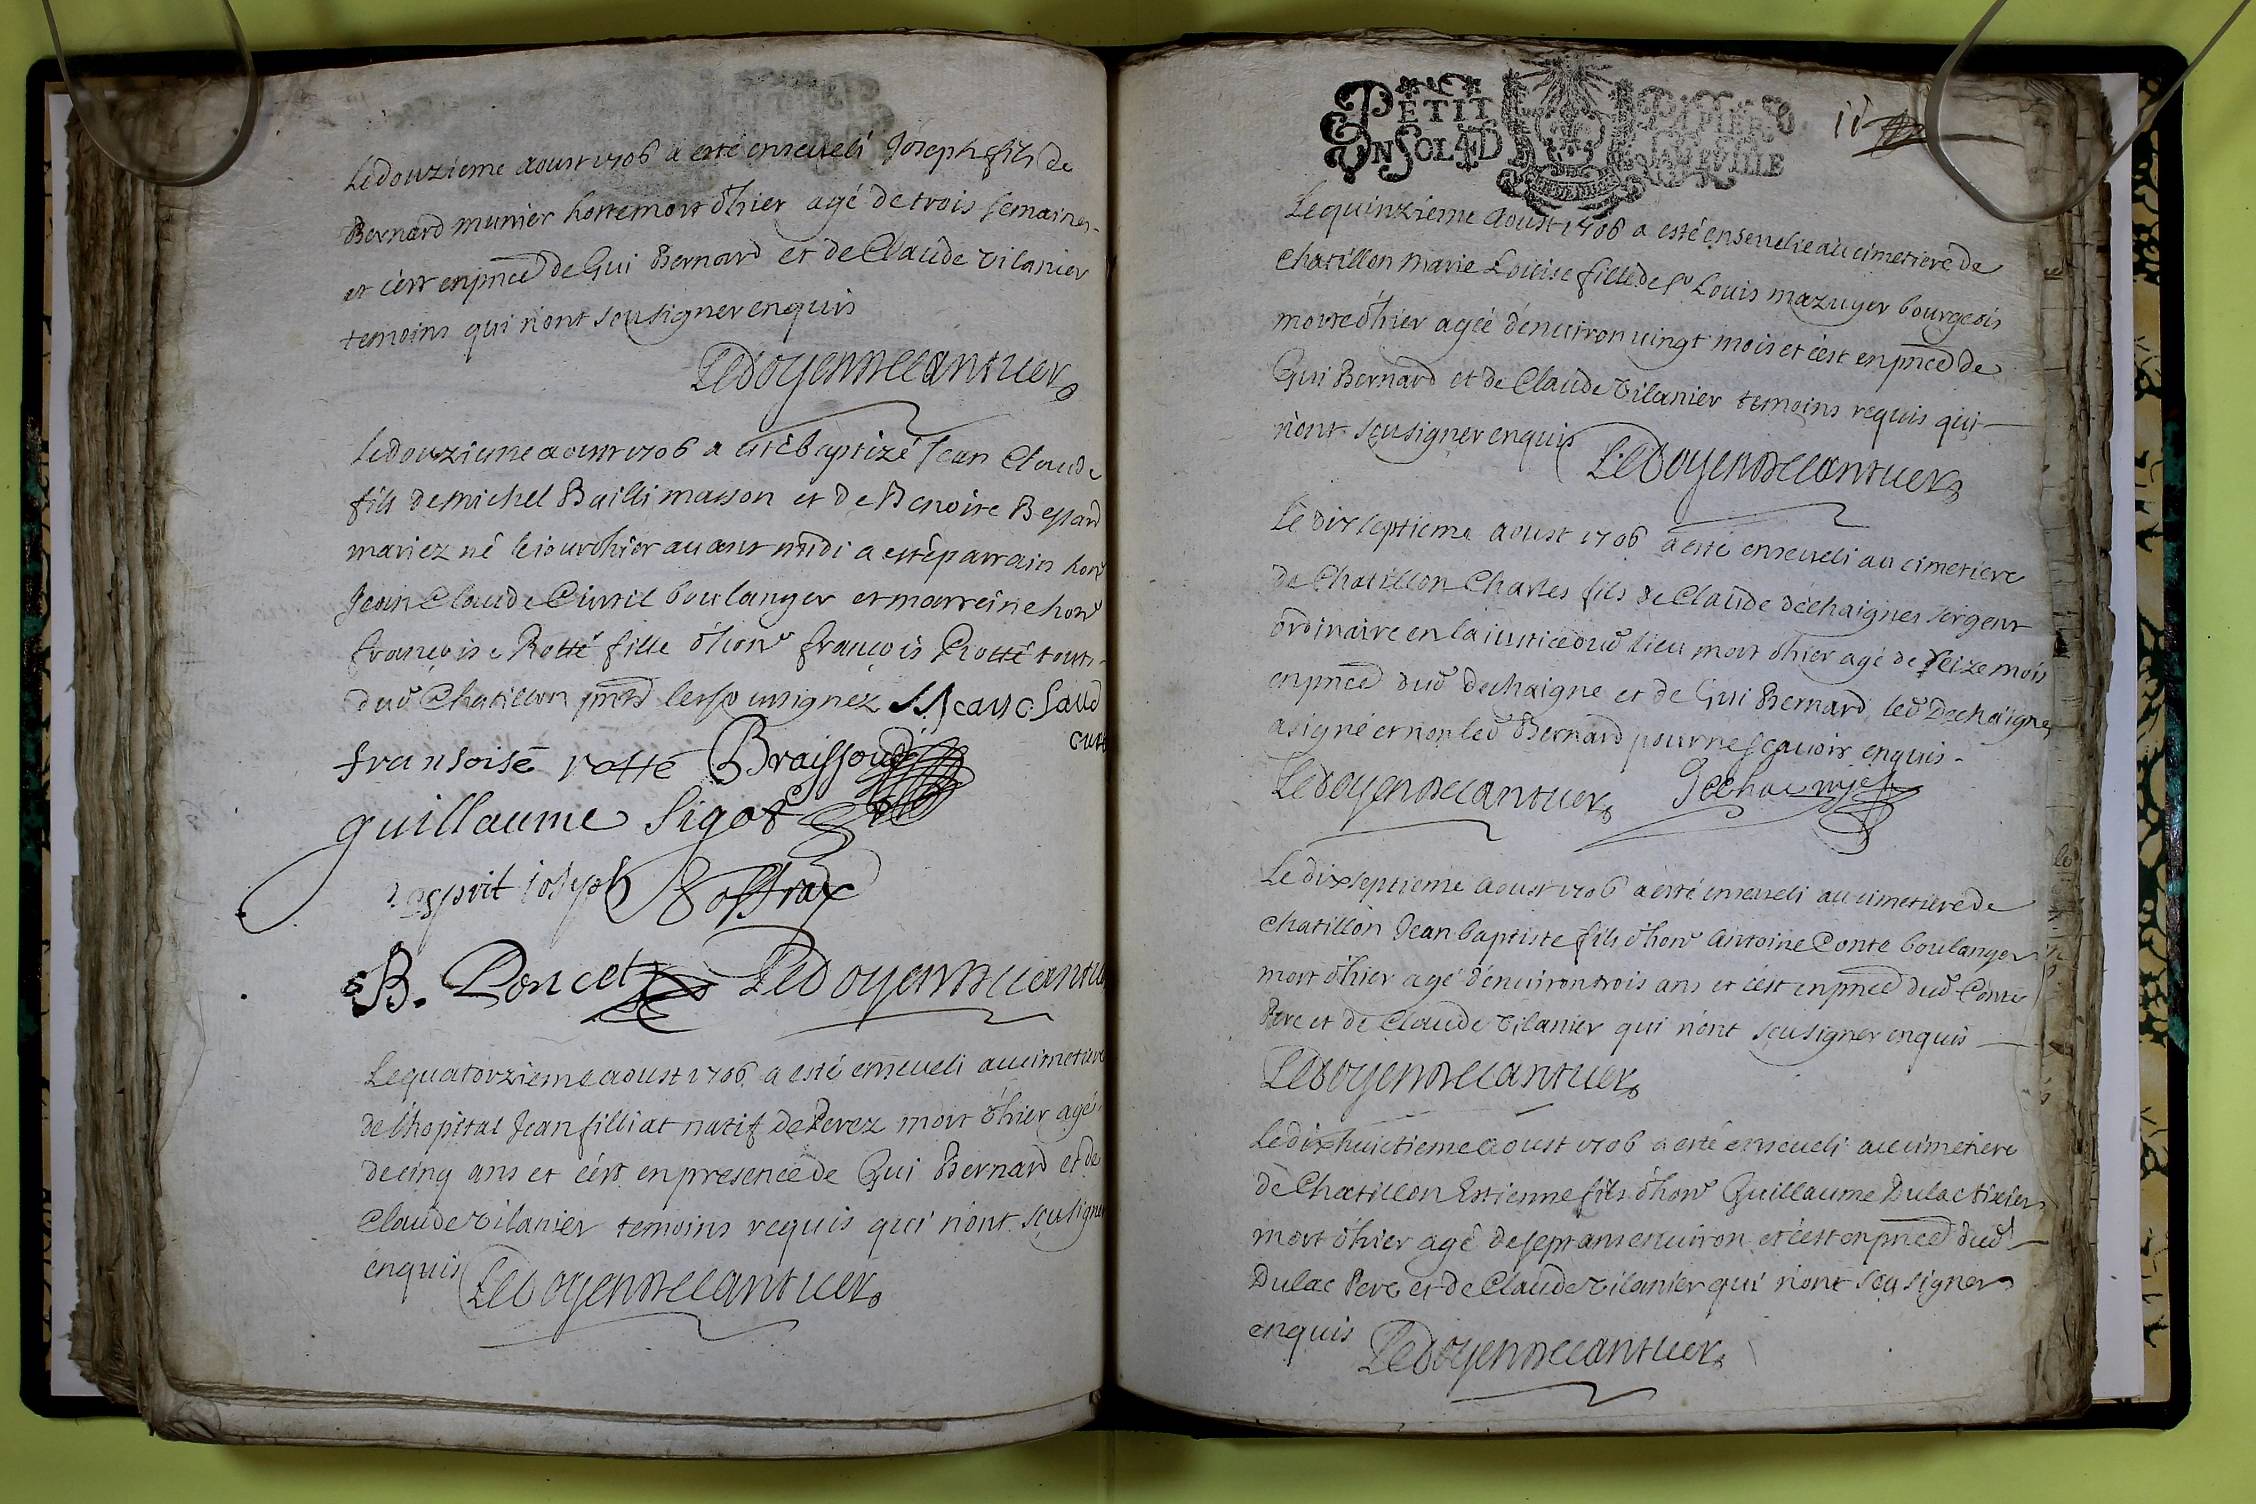 Le douzieme aoust 1706 a esté enseveli Joseph fils de
Bernard munier hoste mort d'hier agé de trois semaines
et c'est en pnce de Gui Bernard et de Claude Vilanier
temoins qui n'ont sçu signer enquis
Ledoyen
Le douzieme aoust 1706 a esté baptizé Jean Claude
fils de michel Bailli masson et de Benoite Bessard
mariez né le iour d'hier avant midi a esté parrain hon
Jean Claude boulanger et marreine hon
françoise Rotté fille d'hon françois Rotté tous
dud Chatillon les sousignez Jean Claud
fransoise rotté Braissoud
guillaume Sigot
esprit ioseph
B. Poncet Ledoyen
Le quatorzieme aoust 1706 a esté enseveli au cimetiere
de l'hopital Jean filliat natif de Perez mort d'hier agé
de cinq ans et c'est en presence de Gui Bernard et de
Claude Vilanier temoins requis qui n'ont sçu signer
enquis Ledoyen
PETIT PAPIER
UN SOL 4 D LA FEUILLE
11
Le quinzieme aoust 1706 a esté ensevelie au cimetiere de
chatillon marie Louise fille de sr Louis mazuyer bourgeois
morte d'hier agée d'environ vingt mois et c'est en pnce de
Gui Bernard et de Claude Vilanier temoins requis qui
n'ont sçu signer enquis Ledoyen
Le dix septieme aoust 1706 a esté enseveli au cimetiere
de Chatillon Charles fils de Claude déchaignes sergent
ordinaire en la iustice dud lieu mort d'hier agé de seize mois
en pnce dud dechaigne et de Gui Bernard led Dechaigne
a signé et non led Bernard pour ne sçavoir enquis
Ledoyen Dechaignes
Le dix septieme aoust 1706 a esté enseveli au cimetiere de
chatillon Jean baptiste fils d'hon Antoine Conte boulanger
mort d'hier agé d'environ trois ans et c'est en pnce dud Conte
Pere et de Claude Vilanier qui n'ont sçu signer enquis
Ledoyen
Le dix huictieme aoust 1706 a esté enseveli au cimetiere
de Chatillon Estienne fils d'hon Guillaume Dulac tixier
mort d'hier agé de sept ans environ et c'est en pnce dud
Dulac Pere et de Claude Vilanier qui n'ont sçu signer
enquis Ledoyen